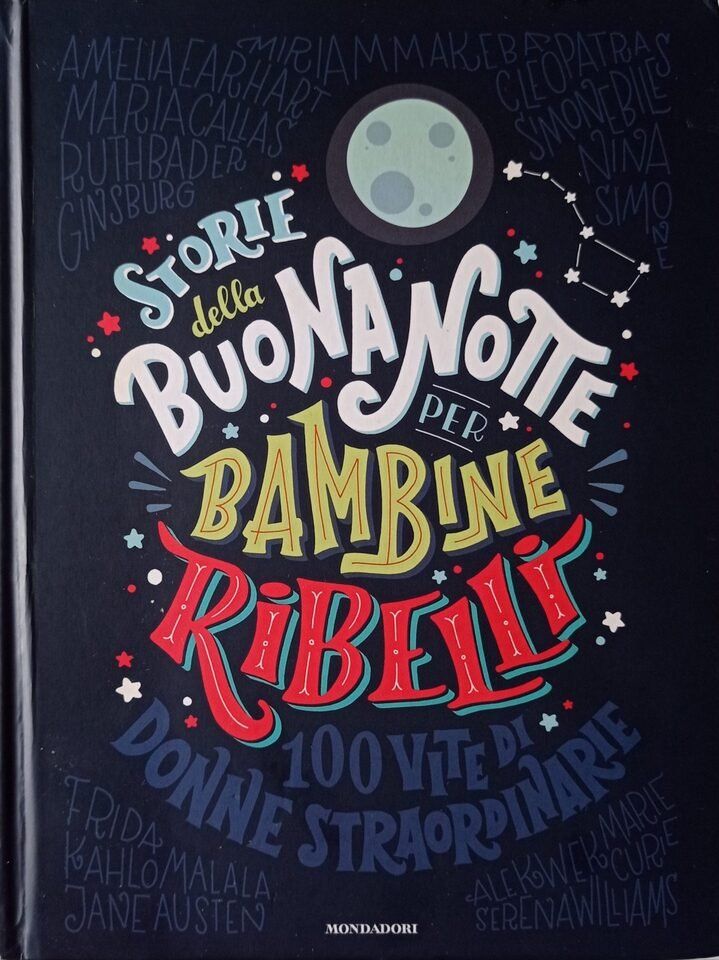 AMELIA EARHART
MARIA CALLAS
RUTH BADER
GINSBURG
MIRIAM MAKEBA
CLEOPATRA
SIMONE BILES
NINA
SIMONE
STORIE
della
BUONANOTTE
PER
BAMBINE
RIBELLI
100 VITE DI
DONNE STRAORDINARIE
FRIDA
KAHLO MALALA
JANE AUSTEN
ALEK WEK MARIE
CURIE
SERENA WILLIAMS
MONDADORI